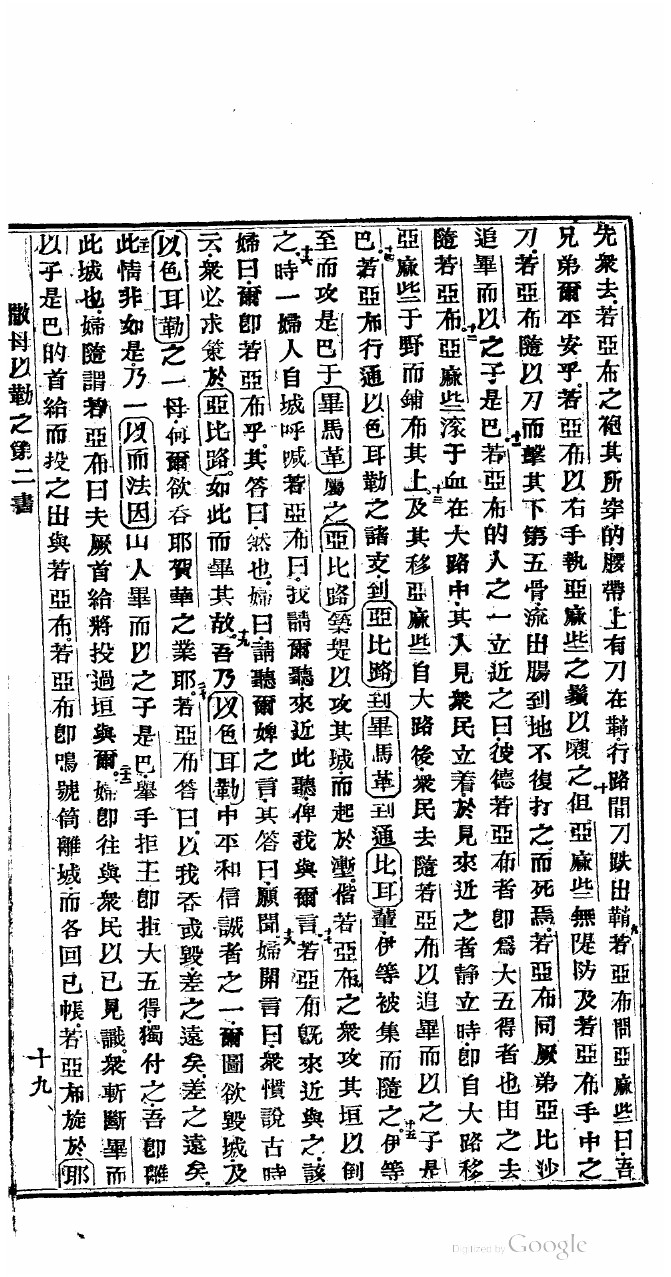 先衆去若亞布之袍其所穿的腰帶上有刀在鞘行路間刀跌出鞘九若亞布問亞麻些曰吾
兄弟爾平安乎若亞布以右手執亞麻些之鬚以嚷之十但亞麻些無隄防及若亞布手中之
刀若亞布隨以刀而擊其下第五骨流出腸到地不復打之而死焉若亞布同厥弟亞比沙
追畢而以之子是巴十一若亞布的人之一立近之曰彼德若亞布者卽爲大五得者也由之去
隨若亞布十二亞麻些滚于血在大路中其人見衆民立着於見來近之者静立時卽自大路移
亞麻些于野而鋪布其上十三及其移亞麻些自大路後衆民去隨若亞布以追畢而以之子是
巴十四若亞布行通以色耳勒之諸支到亞比路到畢馬革到通比耳輩伊等被集而隨之十五伊等
至而攻是巴于畢馬革屬之亞比路築堤以攻其城而起於壍偕若亞布之衆攻其垣以倒
之十六時一婦人自城呼喊若亞布曰我請爾聽來近此聽俾我與爾言十七若亞布旣來近與之該
婦曰爾卽若亞布乎其答曰然也婦曰請聽爾婢之言其答曰願聞十八婦開言曰衆慣說古時
云衆必求策於亞比路如此而畢其故十九吾乃以色耳勒中平和信誠者之一爾圖欲毀城及
以色耳勒之一母何爾欲吞耶賀華之業耶二十若亞布答曰以我吞或毀差之遠矣差之遠矣
此情非如是乃一以而法因山人畢而以之子是巴舉手拒王卽拒大五得獨付之吾卽離
此城也婦隨謂若亞布曰夫厥首給將投過垣與爾婦卽往與衆民以已見識衆斬斷畢而
以子是巴的首給而投之出與若亞布若亞布卽鳴號筒離城而各回已帳若亞布旋於耶
撒母以勒之第二書
十九
Digitized by Google